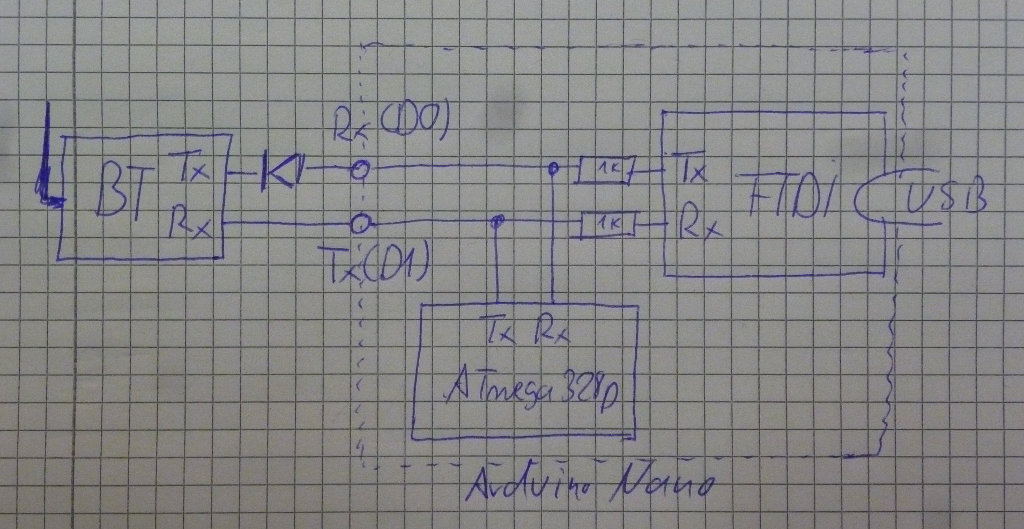 Rx (D0)
BT Tx 1K Tx FTDI USB
Rx 1K Rx
Tx (D1)
Tx Rx
ATmega 328p
Arduino Nano